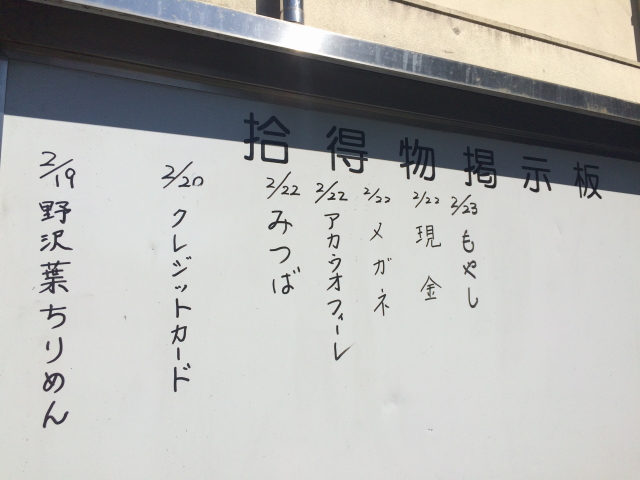 拾得物掲示板
2/23 もやし
2/22 現金
2/22 メガネ
2/22 アカウオフィーレ
2/22 みつば
2/20 クレジットカード
2/19 野沢葉ちりめん